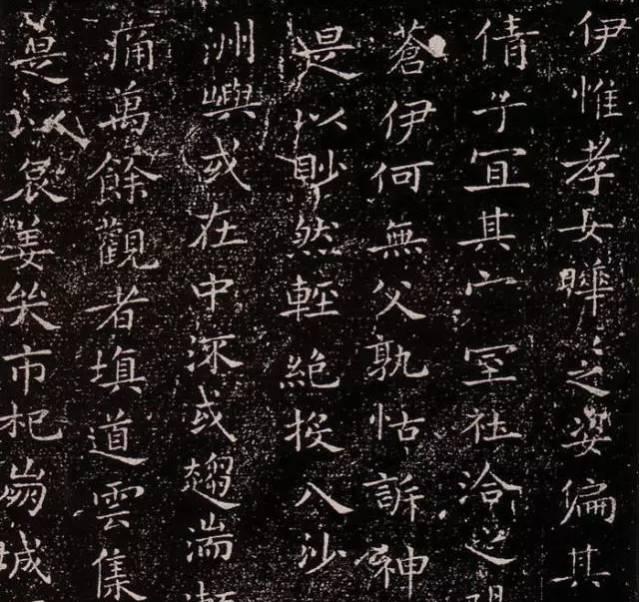 伊惟孝女曄之姿偏其
倩子冝其室室在洽之陽
蒼伊何無父孰怙訴神
是以眇然輕絕投入沙
洲嶼或在中深或趨湍瀨
痛萬餘觀者填道雲集
是以哀姜哭市杞崩城